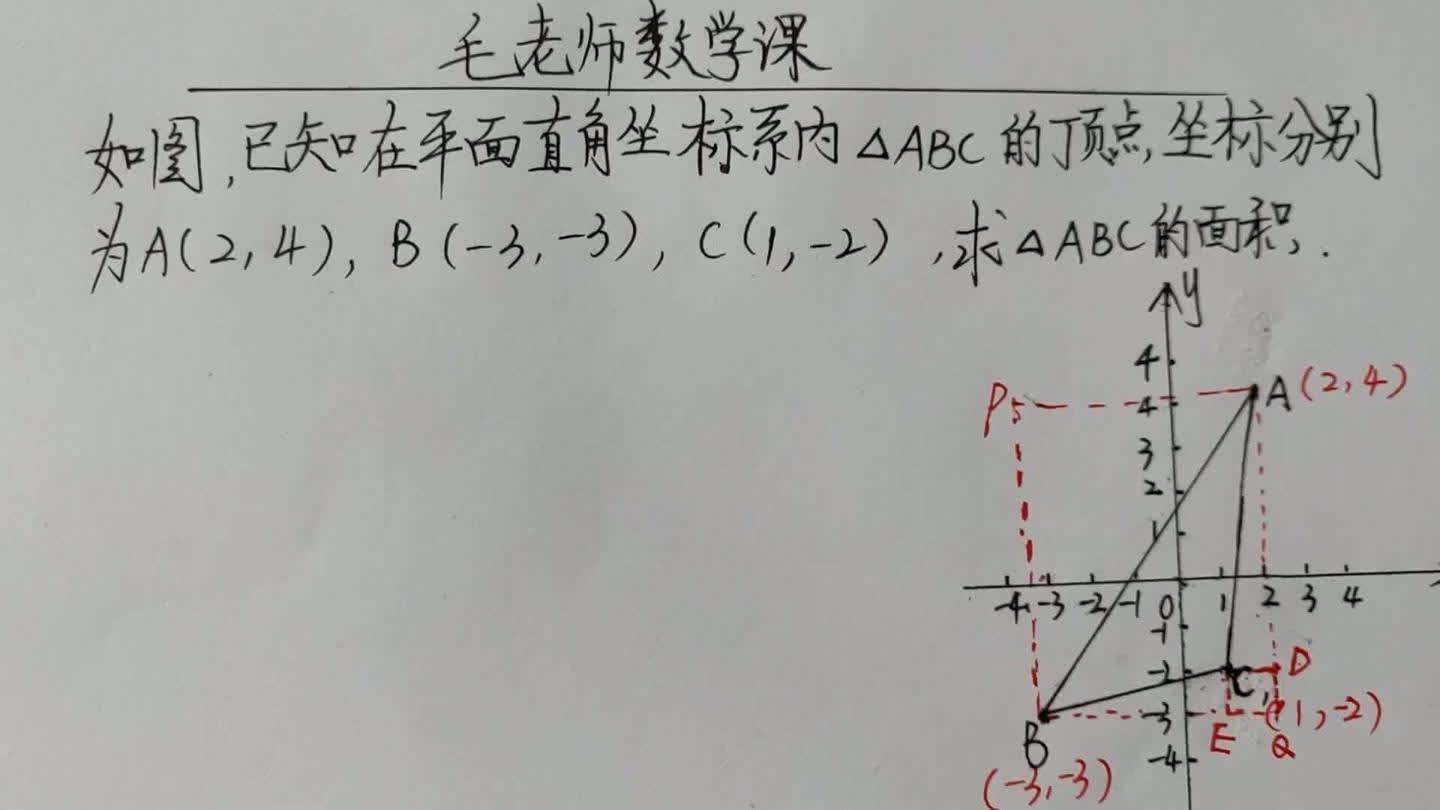 毛老师数学课
如图,已知在平面直角坐标系内△ABC的顶点,坐标分别
为A(2,4), B(-3,-3), C(1,-2) ,求△ABC的面积.
y
4
P 4 A(2,4)
3
2
1
-4 -3 -2 -1 0 1 2 3 4
-1
-2 C D
B -3 E Q (1,-2)
(-3,-3) -4